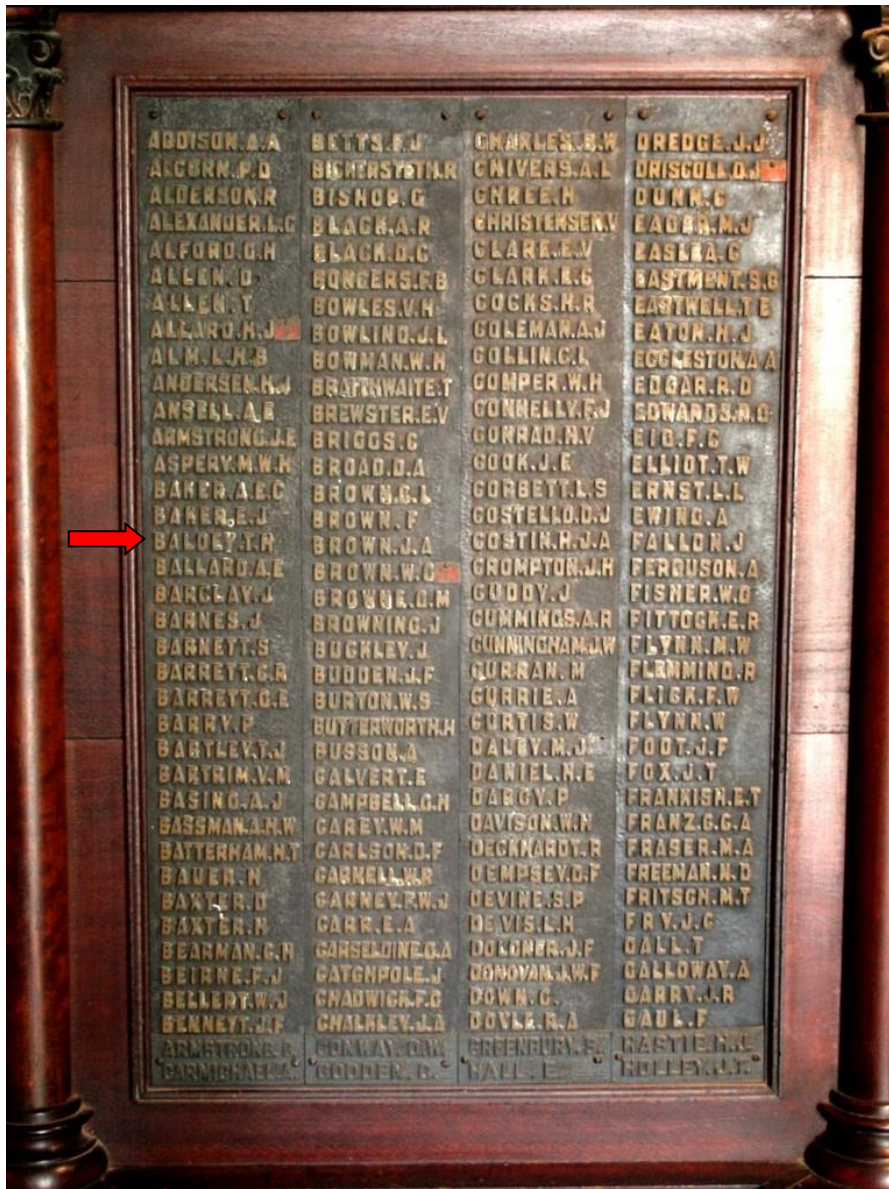 ADDISON.A.A
ALCORN.P.D
ALDERSON.R
ALEXANDER.L.C
ALFORD.O.H
ALLEN.D
ALLEN.T
ALLARD.H.J
ALM.L.H.B
ANDERSEN.H.J
ANSELL.A.E
ARMSTRONG.J.E
ASPERY.M.W.H
BAKER.A.E.C
BAKER.E.J
BALDEY.T.H
BALLARD.A.E
BARCLAY.J
BARNES.J
BARNETT.S
BARRETT.C.R
BARRETT.G.E
BARRY.P
BARTLEY.T.J
BARTRIM.V.M
BASING.A.J
BASSMAN.A.H.W
BATTERHAM.H.T
BAUER.H
BAXTER.D
BAXTER.H
BEARMAN.C.H
BEIRNE.F.J
BELLERT.W.J
BENNETT.J.F
ARMSTRONG.C.
CARMICHAEL.A.
BETTS.F.J
BICKERSTETH.R
BISHOP.G
BLACK.A.R
BLACK.D.C
BONGERS.F.B
BOWLES.V.H
BOWLING.J.L
BOWMAN.W.H
BRAITHWAITE.T
BREWSTER.E.V
BRIGGS.C
BROAD.D.A
BROWN.C.L
BROWN.F
BROWN.J.A
BROWN.W.C
BROWNE.O.M
BROWNING.J
BUCKLEY.J
BUDDEN.J.F
BURTON.W.S
BUTTERWORTH.H
BUSSON.A
CALVERT.E
CAMPBELL.C.H
CAREY.W.M
CARLSON.D.F
CARNELL.W.R
CARNEY.F.W.J
CARR.E.A
CARSELDINE.O.A
CATCHPOLE.J
CHADWICK.F.C
CHALKLEY.J.A
CONWAY.D.W.
GODDEN.C.
CHARLES.S.W
CHIVERS.A.L
CHREE.H
CHRISTENSEN.V
CLARE.E.V
CLARK.E.G
COCKS.H.R
COLEMAN.A.J
COLLIN.C.L
COMPER.W.H
CONNELLY.F.J
CONRAD.H.V
COOK.J.E
CORBETT.L.S
COSTELLO.D.J
COSTIN.H.J.A
CROMPTON.J.H
CUDDY.J
CUMMINGS.A.R
CUNNINGHAM.J.W
CURRAN.M
CURRIE.A
CURTIS.W
DALBY.M.J
DANIEL.H.E
DARCY.P
DAVISON.W.H
DECKHARDT.R
DEMPSEY.D.F
DEVINE.S.P
DEVIS.L.H
DOLDNER.J.F
DONOVAN.J.W.F
DOWN.C.
DOYLE.R.A
GREENBURY.S.
HALL.E.
DREDGE.J.J
DRISCOLL.D.J
DUNN.C
EADER.M.J
EASLEA.C
EASTMENT.S.G
EASTWELL.T.E
EATON.H.J
EGGLESTON.A.A
EDGAR.R.D
EDWARDS.R.G
EID.F.C
ELLIOT.T.W
ERNST.L.L
EWING.A
FALLON.J
FERGUSON.A
FISHER.W.G
FITTOCK.E.R
FLYNN.M.W
FLEMMING.R
FLICK.F.W
FLYNN.W
FOOT.J.F
FOX.J.T
FRANKISH.E.T
FRANZ.G.G.A
FRASER.M.A
FREEMAN.N.D
FRITSCH.M.T
FRY.J.C
GALL.T
GALLOWAY.A
GARRY.J.R
GAUL.F
HASTIE.M.J.
HOLLEY.J.T.